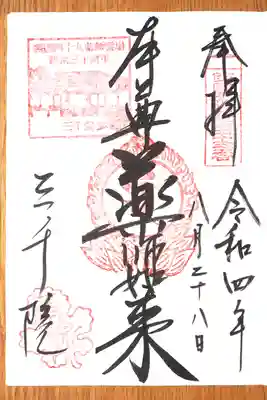 奉拝
令和四年
八月二十八日
本尊薬師如来
三千院